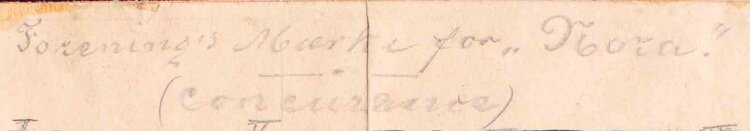 Forening's Mærke for „Nora."
(Concurance)
I II